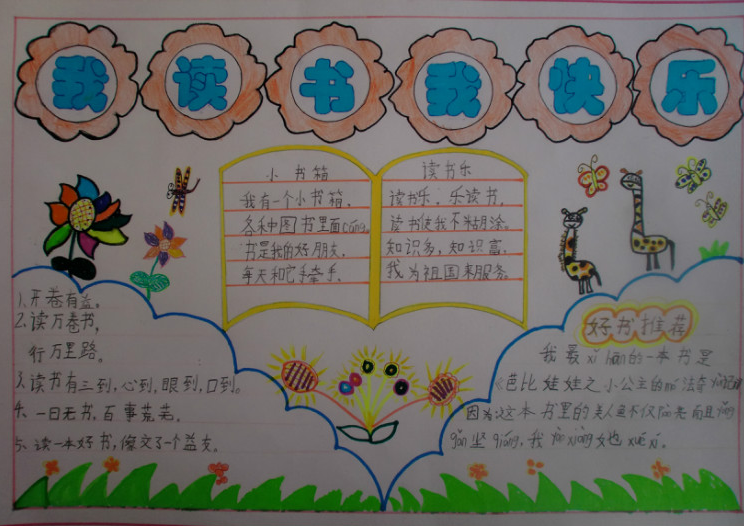 我读书我快乐
小书箱
我有一个小书箱,
各种图书里面cáng。
书是我的好朋友,
每天和它手牵手。
读书乐
读书乐,乐读书,
读书使我不糊涂。
知识多,知识富,
我为祖国来服务。
1、开卷有益。
2、读万卷书,
行万里路。
3、读书有三到,心到,眼到,口到。
4、一日无书,百事荒芜。
5、读一本好书,像交了一个益友。
好书推荐
我最xǐ huān的一本书是
《芭比娃娃之小公主的
因为这本书里的美人鱼不仅 而且
gǎn 坚qiáng,我 xiàng她xué xí。